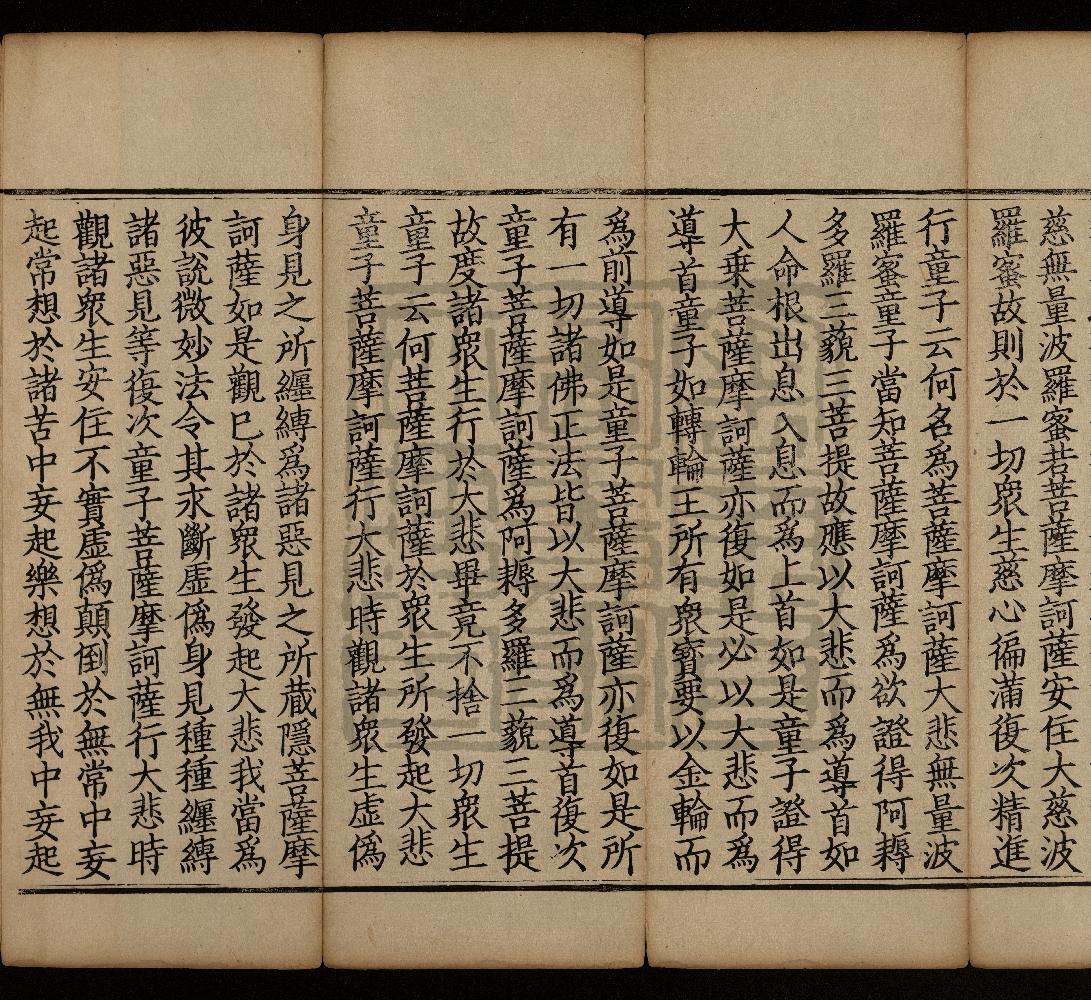 慈無量波羅蜜若菩薩摩訶薩安住大慈波
羅蜜故則於一切衆生慈心徧滿復次精進
行童子云何名為菩薩摩訶薩大悲無量波
羅蜜童子當知菩薩摩訶薩為欲證得阿耨
多羅三藐三菩提故應以大悲而為導首如
人命根出息入息而為上首如是童子證得
大乗菩薩摩訶薩亦復如是必以大悲而為
導首童子如轉輪王所有衆寶要以金輪而
為前導如是童子菩薩摩訶薩亦復如是所
有一切諸佛正法皆以大悲而為導首復次
童子菩薩摩訶薩為阿耨多羅三藐三菩提
故度諸衆生行於大悲畢竟不捨一切衆生
童子云何菩薩摩訶薩於衆生所發起大悲
童子菩薩摩訶薩行大悲時觀諸衆生虚偽
身見之所纏縛為諸惡見之所藏隱菩薩摩
訶薩如是觀已於諸衆生發起大悲我當為
彼說微妙法令其永斷虚偽身見種種纏縛
諸惡見等復次童子菩薩摩訶薩行大悲時
觀諸衆生安住不實虚偽顛倒於無常中妄
起常想於諸苦中妄起樂想於無我中妄起